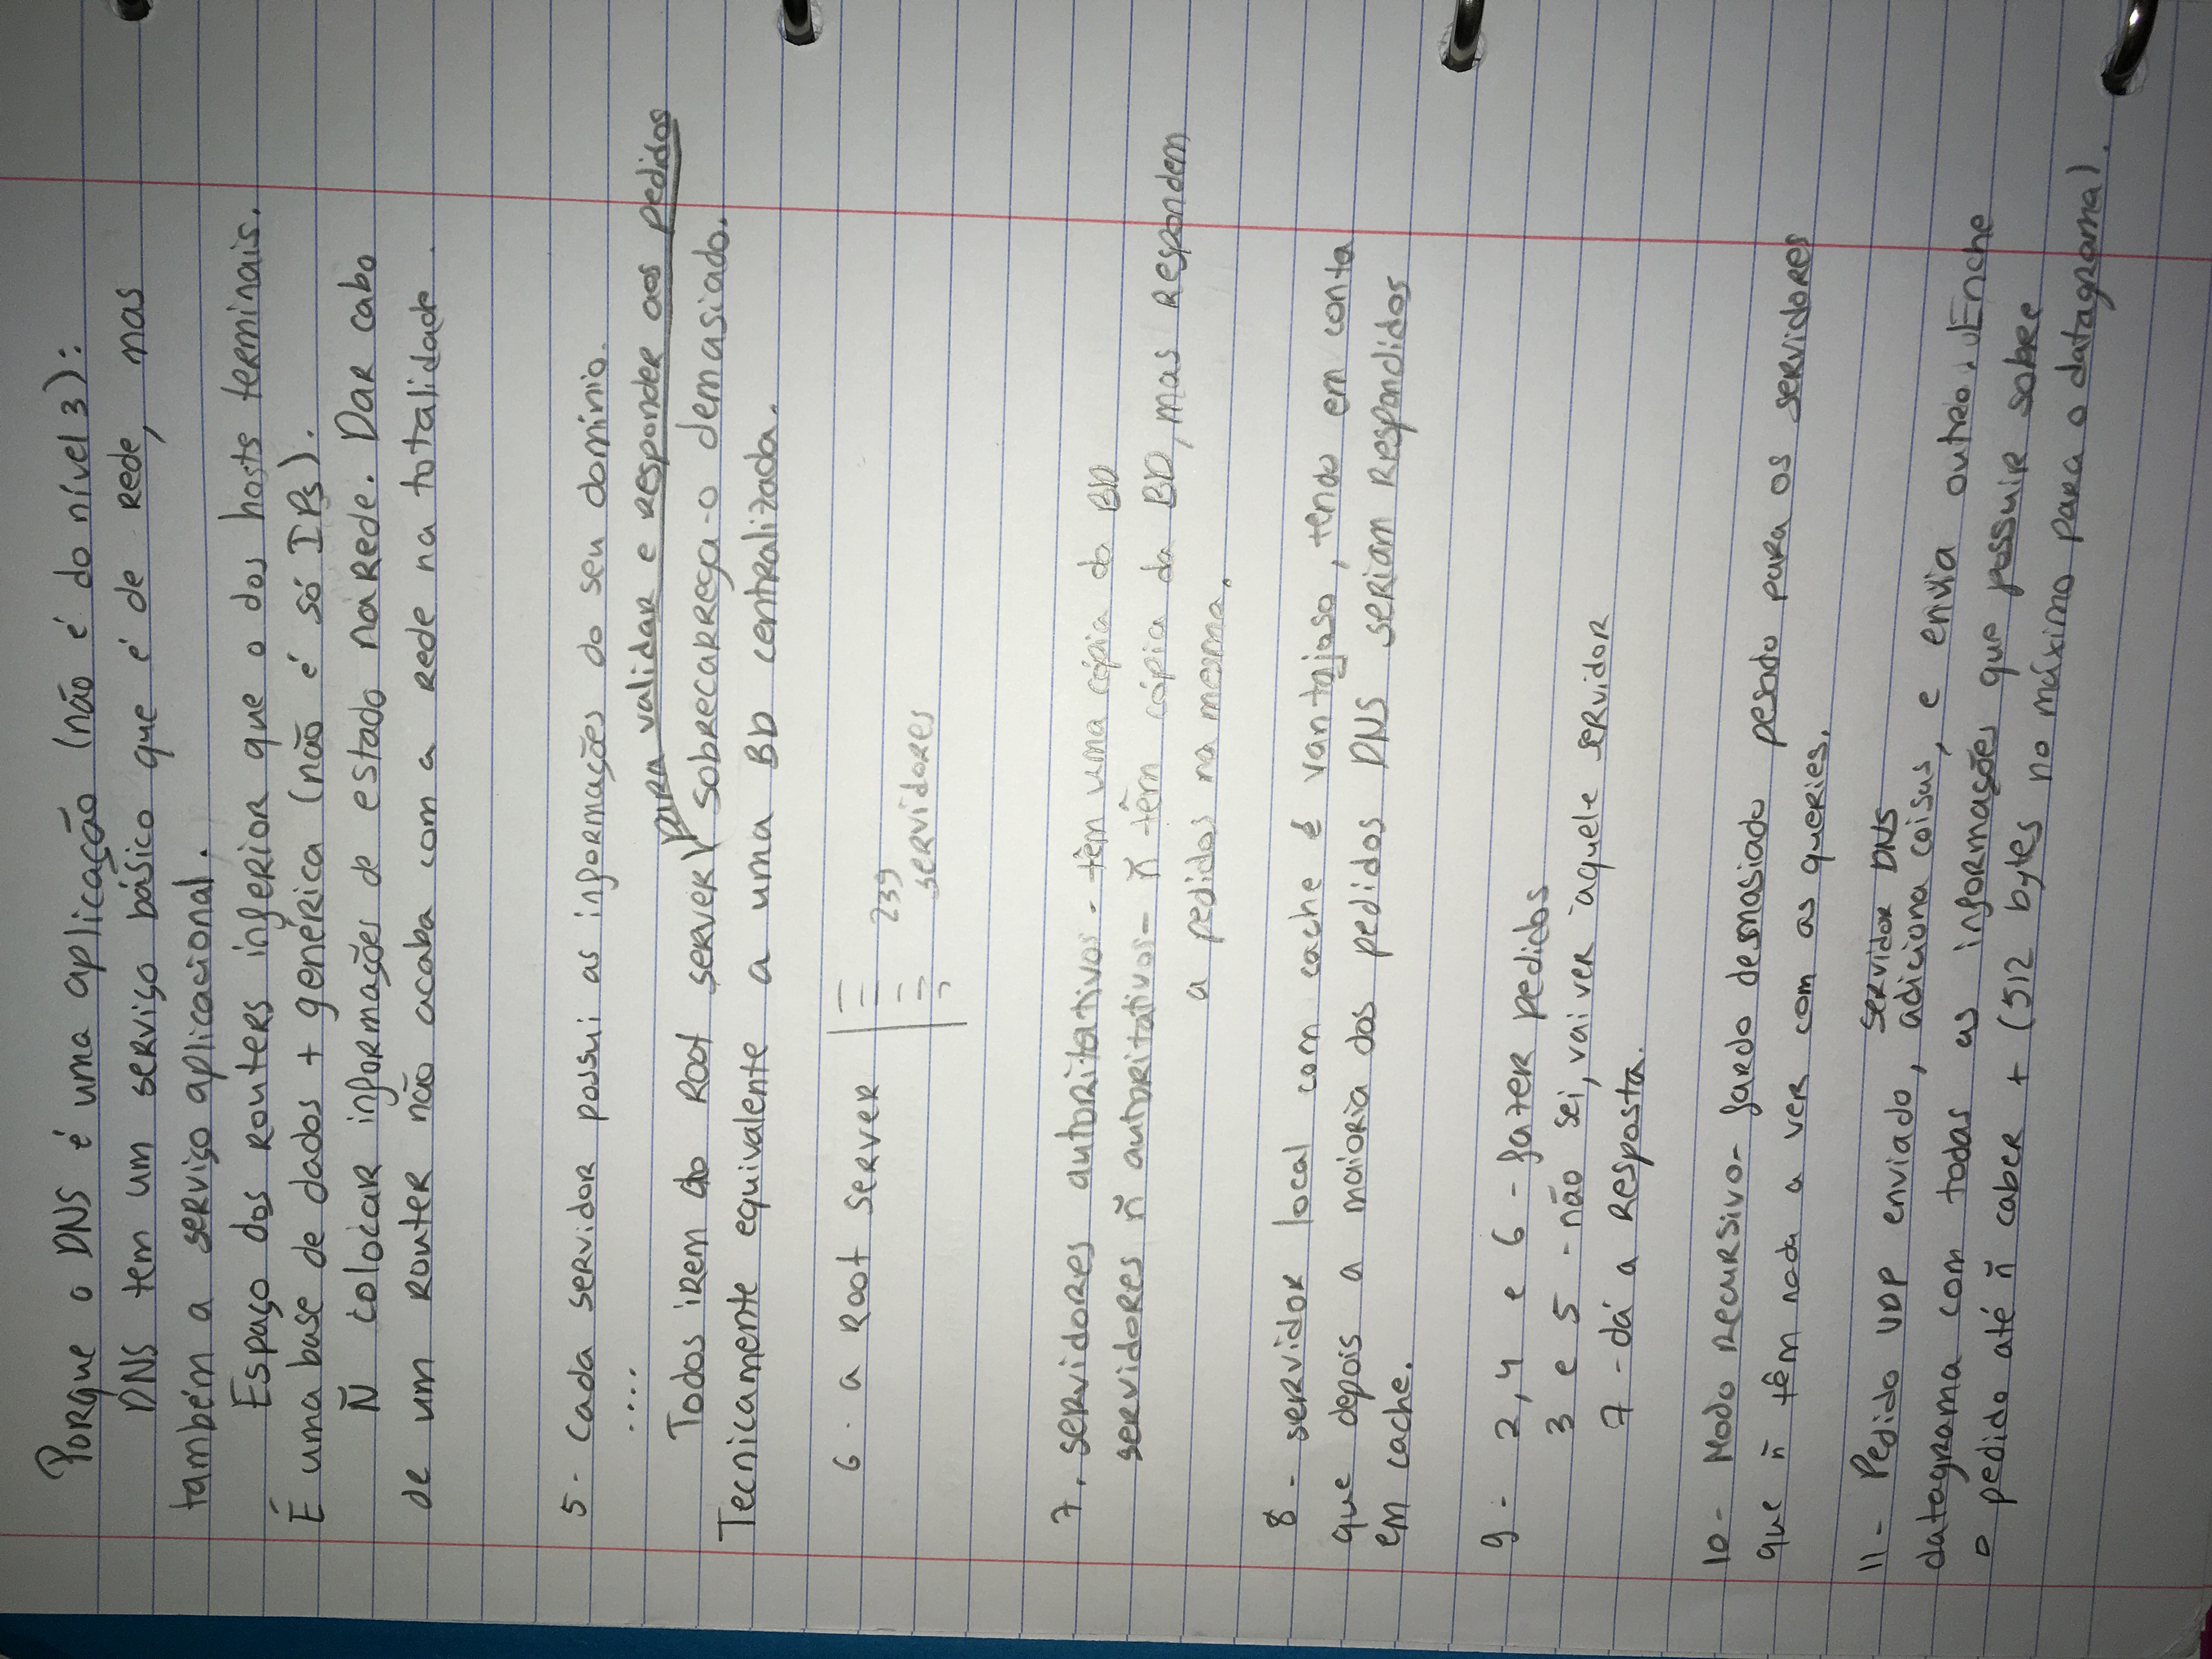 Porque o DNS é uma aplicação (não é do nível 3):
DNS tem um serviço básico que é de rede, mas
também a serviço aplicacional.
Espaço dos routers inferior que o dos hosts terminais.
É uma base de dados + genérica (não é só IPs).
Ñ colocar informações de estado na rede. Dar cabo
de um router não acaba com a rede na totalidade.
5- Cada servidor possui as informações do seu domínio.
....
para validar e responder aos pedidos
Todos irem ao root server sobrecarrega-o demasiado.
Tecnicamente equivalente a uma BD centralizada.
6. a root server
239
servidores
7. servidores autoritativos - têm uma cópia da BD
servidores ñ autoritativos - ñ têm cópia da BD, mas respondem
a pedidos na mesma.
8- servidor local com cache é vantajoso, tendo em conta
que depois a maioria dos pedidos DNS seriam respondidos
em cache.
9- 2, 4 e 6 - fazer pedidos
3 e 5 - não sei, vai ver àquele servidor
7 - dá a resposta.
10- Modo recursivo- fardo demasiado pesado para os servidores
que ñ têm nada a ver com as queries.
servidor DNS
11- Pedido UDP enviado, adiciona coisas, e envia outro. Enche
datagrama com todas as informações que possuir sobre
o pedido até ñ caber + (512 bytes no máximo para o datagrama).